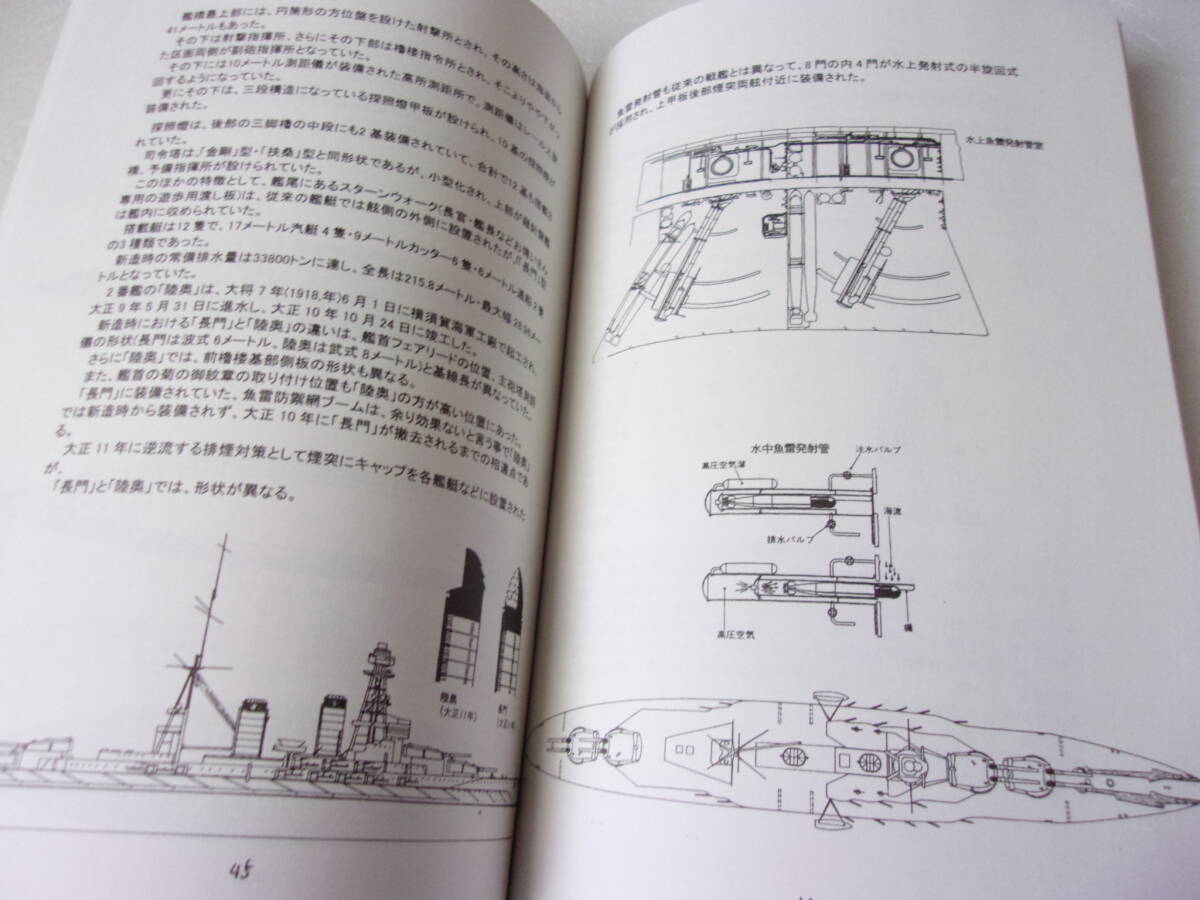 艦橋最上部には、円筒形の方位盤を設けた射撃所とされ、その高さは
41メートルもあった。
その下は射撃指揮所、さらにその下部は櫓楼指令所とされ、そこよりやや下がっ
た区画両側が副砲指揮所となっていた。
その下には10メートル測距儀が装備された高所測距所で、測距儀はレール上を旋
回するようになっていた。
更にその下は、三段構造になっている探照燈甲板が設けられ、10基の探照燈が
装備された。
探照燈は、後部の三脚檣の中段にも2基装備されていて、合計で12基も搭載さ
れていた。
司令塔は、「金剛」型・「扶桑」型と同形状であるが、小型化され、上部が
橋、予備指揮所が設けられていた。
このほかの特徴として、艦尾にあるスターンウォーク(長官・艦長などお偉いさん
専用の遊歩用渡し板)は、従来の艦艇では舷側の外側に設置されたが、「長門」型
は艦内に収められていた。
搭載艇は12隻で、17メートル汽艇4隻・9メートルカッター6隻・6メートル通船2隻
の3種類であった。
新造時の常備排水量は33800トンに達し、全長は215.8メートル・最大幅28.96メー
トルとなっていた。
2番艦の「陸奥」は、大将7年(1918,年)6月1日に横須賀海軍工廠で起工され、
大正9年5月31日に進水し、大正10年10月24日に竣工した。
新造時における「長門」と「陸奥」の違いは、艦首フェアリードの位置、主砲塔測距
儀の形状(長門は波式6メートル、陸奥は武式8メートル)と基線長が異なっていた。
さらに「陸奥」では、前檣楼基部側板の形状も異なる。
また、艦首の菊の御紋章の取り付け位置も「陸奥」の方が高い位置にあった。
「長門」に装備されていた、魚雷防禦網ブームは、余り効果ないと言う事で「陸奥」
では新造時から装備されず、大正10年に「長門」が撤去されるまでの相違点であ
る。
大正11年に逆流する排煙対策として煙突にキャップを各艦艇などに設置された
が、
「長門」と「陸奥」では、形状が異なる。
陸奥
(大正11年)
長門
(大正11年)
45
魚雷発射管も従来の戦艦とは異なって、8門の内4門が水上発射式の半旋回式
が採用され、上甲板後部煙突両舷付近に装備された。
水上魚雷発射管室
水中魚雷発射管
注水バルブ
高圧空気溜
海流
排水バルブ
高圧空気